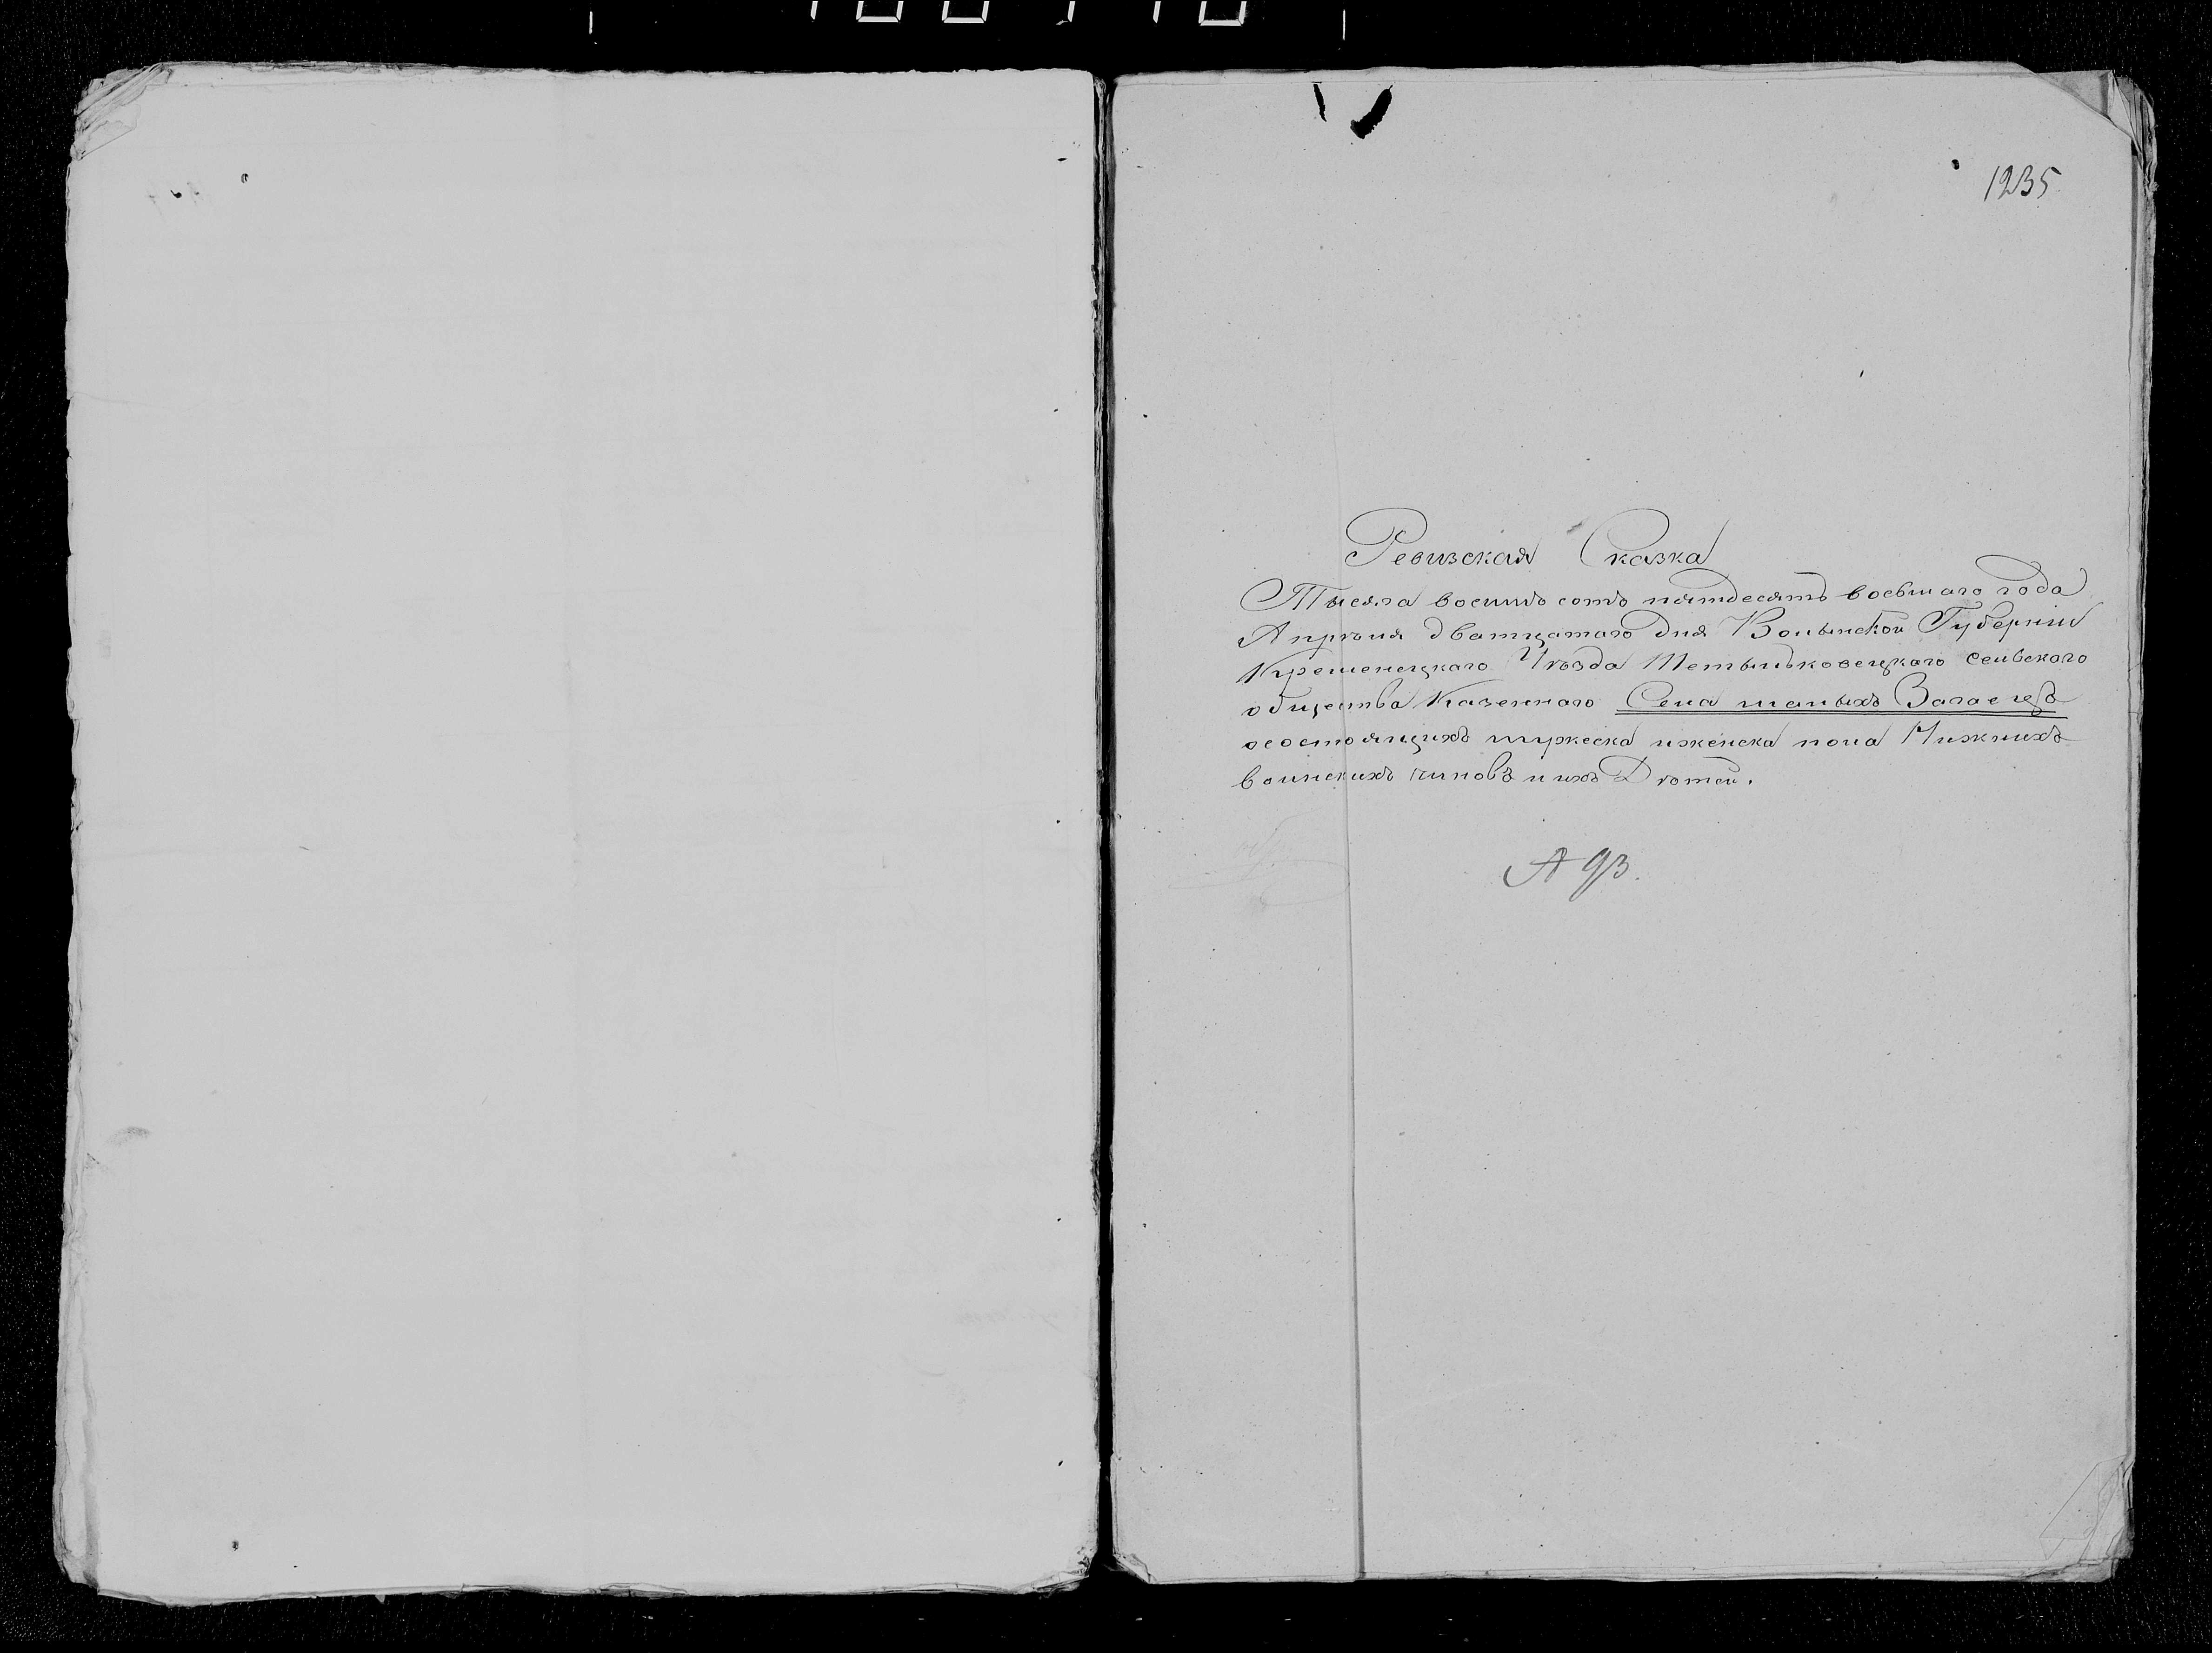 1235
Ревизская Сказка
Тысяча восимъ сотъ пятдесятъ восьмаго года
Апрѣля дватцатаго дня Волынской Губерніи
Кременецкаго Уѣзда Тетыльковецкаго сельскаго
общества Казеннаго Села малыхъ Загаецъ
осостоящихъ мужеска иженска пола Нижнихъ
воинскихъ чиновъ и ихъ Дѣтей.
А 93.